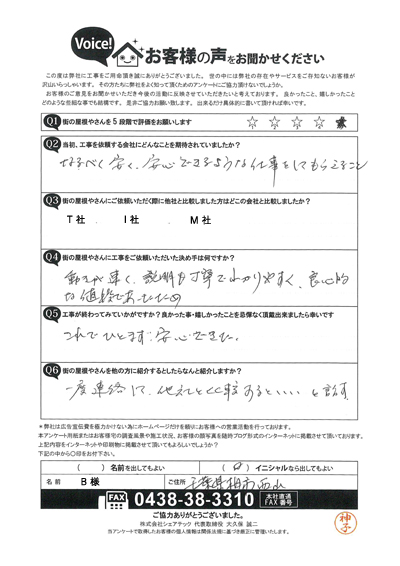 Voice!
お客様の声をお聞かせください
この度は弊社に工事をご用命頂き誠にありがとうございました。世の中には弊社の存在やサービスをご存知ないお客様が
沢山いらっしゃいます。その方たちに弊社をよく知って頂くためのアンケートにご協力頂けないでしょうか。
お客様のご意見をお聞かせいただき今後の活動に反映させていただきたいと考えております。良かったこと、嬉しかったこと
どのような些細な事でも結構です。是非ご協力お願い致します。出来るだけ具体的に書いて頂ければ幸いです。
Q1 街の屋根やさんを5段階で評価をお願いします ☆ ☆ ☆ ☆ ★
Q2 当初、工事を依頼する会社にどんなことを期待されていましたか?
なるべく安く、安心できるような仕事をしてもらえること
Q3 街の屋根やさんにご依頼いただく際に他社と比較しました方はどこの会社と比較しましたか?
T社 . I社 M社
Q4 街の屋根やさんに工事をご依頼いただいた決め手は何ですか?
動きが早く、説明も丁寧でわかりやすく、良心的
な値段であったため
Q5 工事が終わってみていかがですか?良かった事・嬉しかったことを忌憚なく頂戴出来ましたら幸いです
これでひとまず安心できた。
Q6 街の屋根やさんを他の方に紹介するとしたらなんと紹介しますか?
一度連絡して、他社と比較するといい と話す
*弊社は広告宣伝費を極力かけない為にホームページだけを頼りにお客様への営業活動を行っております。
本アンケート用紙またはお客様宅の調査風景や施工状況、お客様の顔写真を随時ブログ形式のインターネットに掲載させて頂いております。
上記内容をインターネットや印刷物に掲載させて頂いてもよろしいでしょうか?
下記の中から〇印をお付け下さい。
( ) 名前を出してもよい (〇) イニシャルなら出してもよい
名前 B様 ご住所 千葉県柏市西山
FAX 0438-38-3310 本社直通 FAX番号
ご協力ありがとうございました。
株式会社シェアテック 代表取締役 大久保 誠二
当アンケートで取得したお客様の個人情報は関係法規に基づき厳正に管理いたします。
神子